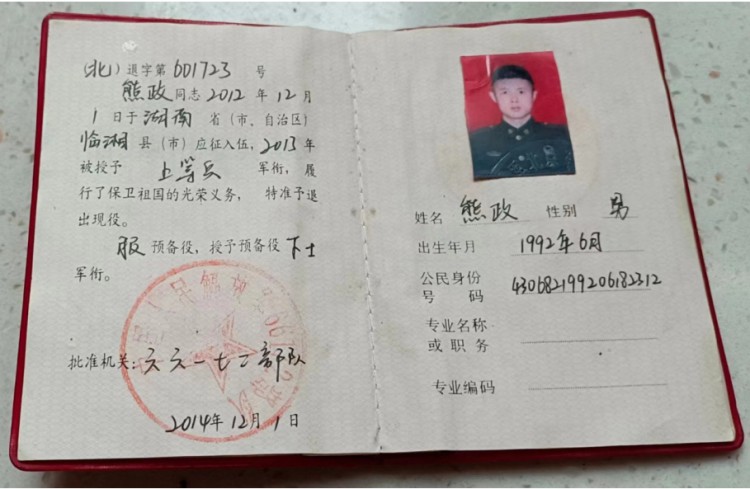 (北)退字第601723号
熊政同志2012年12月
1日于湖南省(市、自治区)
临湘县(市)应征入伍,2013年
被授予 上等兵 军衔,履
行了保卫祖国的光荣义务,特准予退
出现役。
服预备役,授予预备役下士
军衔。
批准机关:六六一七二部队
2014年12月1日
姓名 熊政 性别 男
出生年月 1992年6月
公民身份
号码 430682199206182312
专业名称
或职务
专业编码